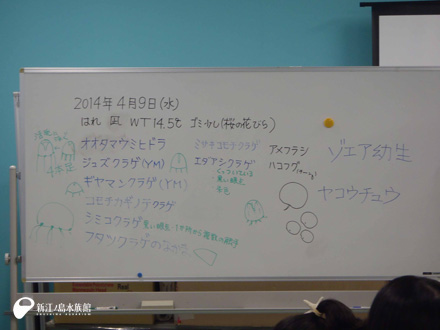 2014年4月9日(水)
はれ 凪 WT 14.5℃ ゴミ少し(桜の花びら)
オオタマウミヒドラ
ジュズクラゲ(YM)
ギヤマンクラゲ(YM)
コモチカギノテクラゲ
ラミコクラゲ 黒い眼点
フタツクラゲのなかま
ミサキコモチクラゲ
エダアシクラゲ
くっついている
・黒い眼点
アメフラシ
ハコフグ
ゾエア幼生
ヤコウチュウ
新江ノ島水族館